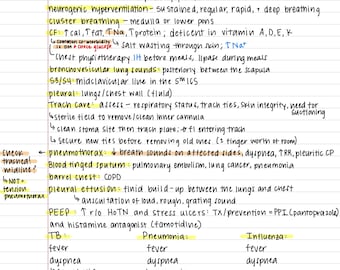 neurogenic hyperventilation - sustained, regular, rapid, + deep breathing
cluster breathing - medulla or lower pons
CF: ↑cal, ↑fat, ↑Na, ↑protein; deficient in vitamin A, D, E, K
↳ salt wasting through skin; ↑Na+
↳ chest physiotherapy 1H before meals, lipase during meals
bronchovesicular lung sounds: posteriorly between the scapula
S3/S4: midclavicular line in the 5th ICS
pleural: lungs/chest wall (fluid)
Trach care: assess - respiratory status, trach ties, skin integrity, need for suctioning
↳ sterile field to remove/clean inner cannula
↳ clean stoma site then trach plate; entering trach
↳ secure new ties before removing old ones (1 finger worth of room)
check trachea! midline!
↳ NOT = tension pneumothorax
pneumothorax: ↓ breath sounds on affected sides, dyspnea, ↑RR, pleuritic CP
Blood tinged sputum: pulmonary embolism, lung cancer, pneumonia
barrel chest: COPD
pleural effusion: fluid build-up between the lungs and chest
↳ auscultation of loud, rough, grating sound
PEEP: ↑ r/o HoTN and stress ulcers! Tx/prevention = PPI (pantoprazole)
and histamine antagonist (famotidine)
TB: Pneumonia: Influenza:
fever fever fever
dyspnea dyspnea dyspnea